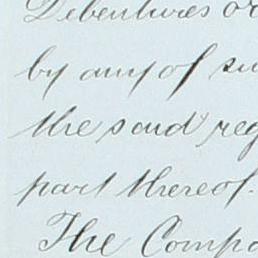 Debentures or
by any of su
the said reg
part thereof.
The Compa